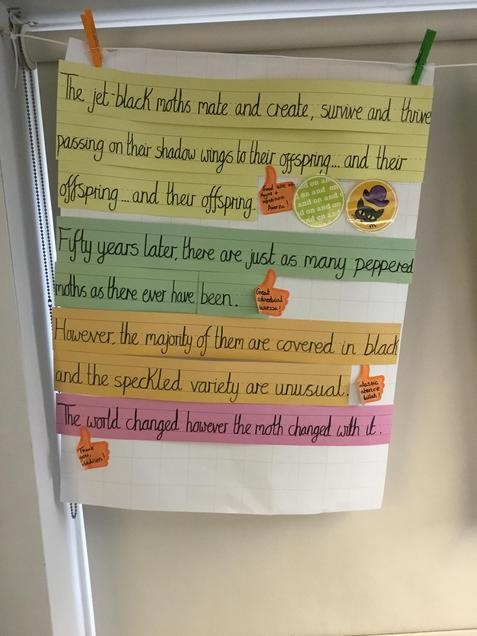 The jet-black moths mate and create, survive and thrive
passing on their shadow wings to their offspring... and their
offspring... and their offspring.
and on and on and on
Fifty years later, there are just as many peppered
moths as there ever have been.
Great adverbial
However, the majority of them are covered in black
and the speckled variety are unusual.
The world changed however the moth changed with it.
Thank you,